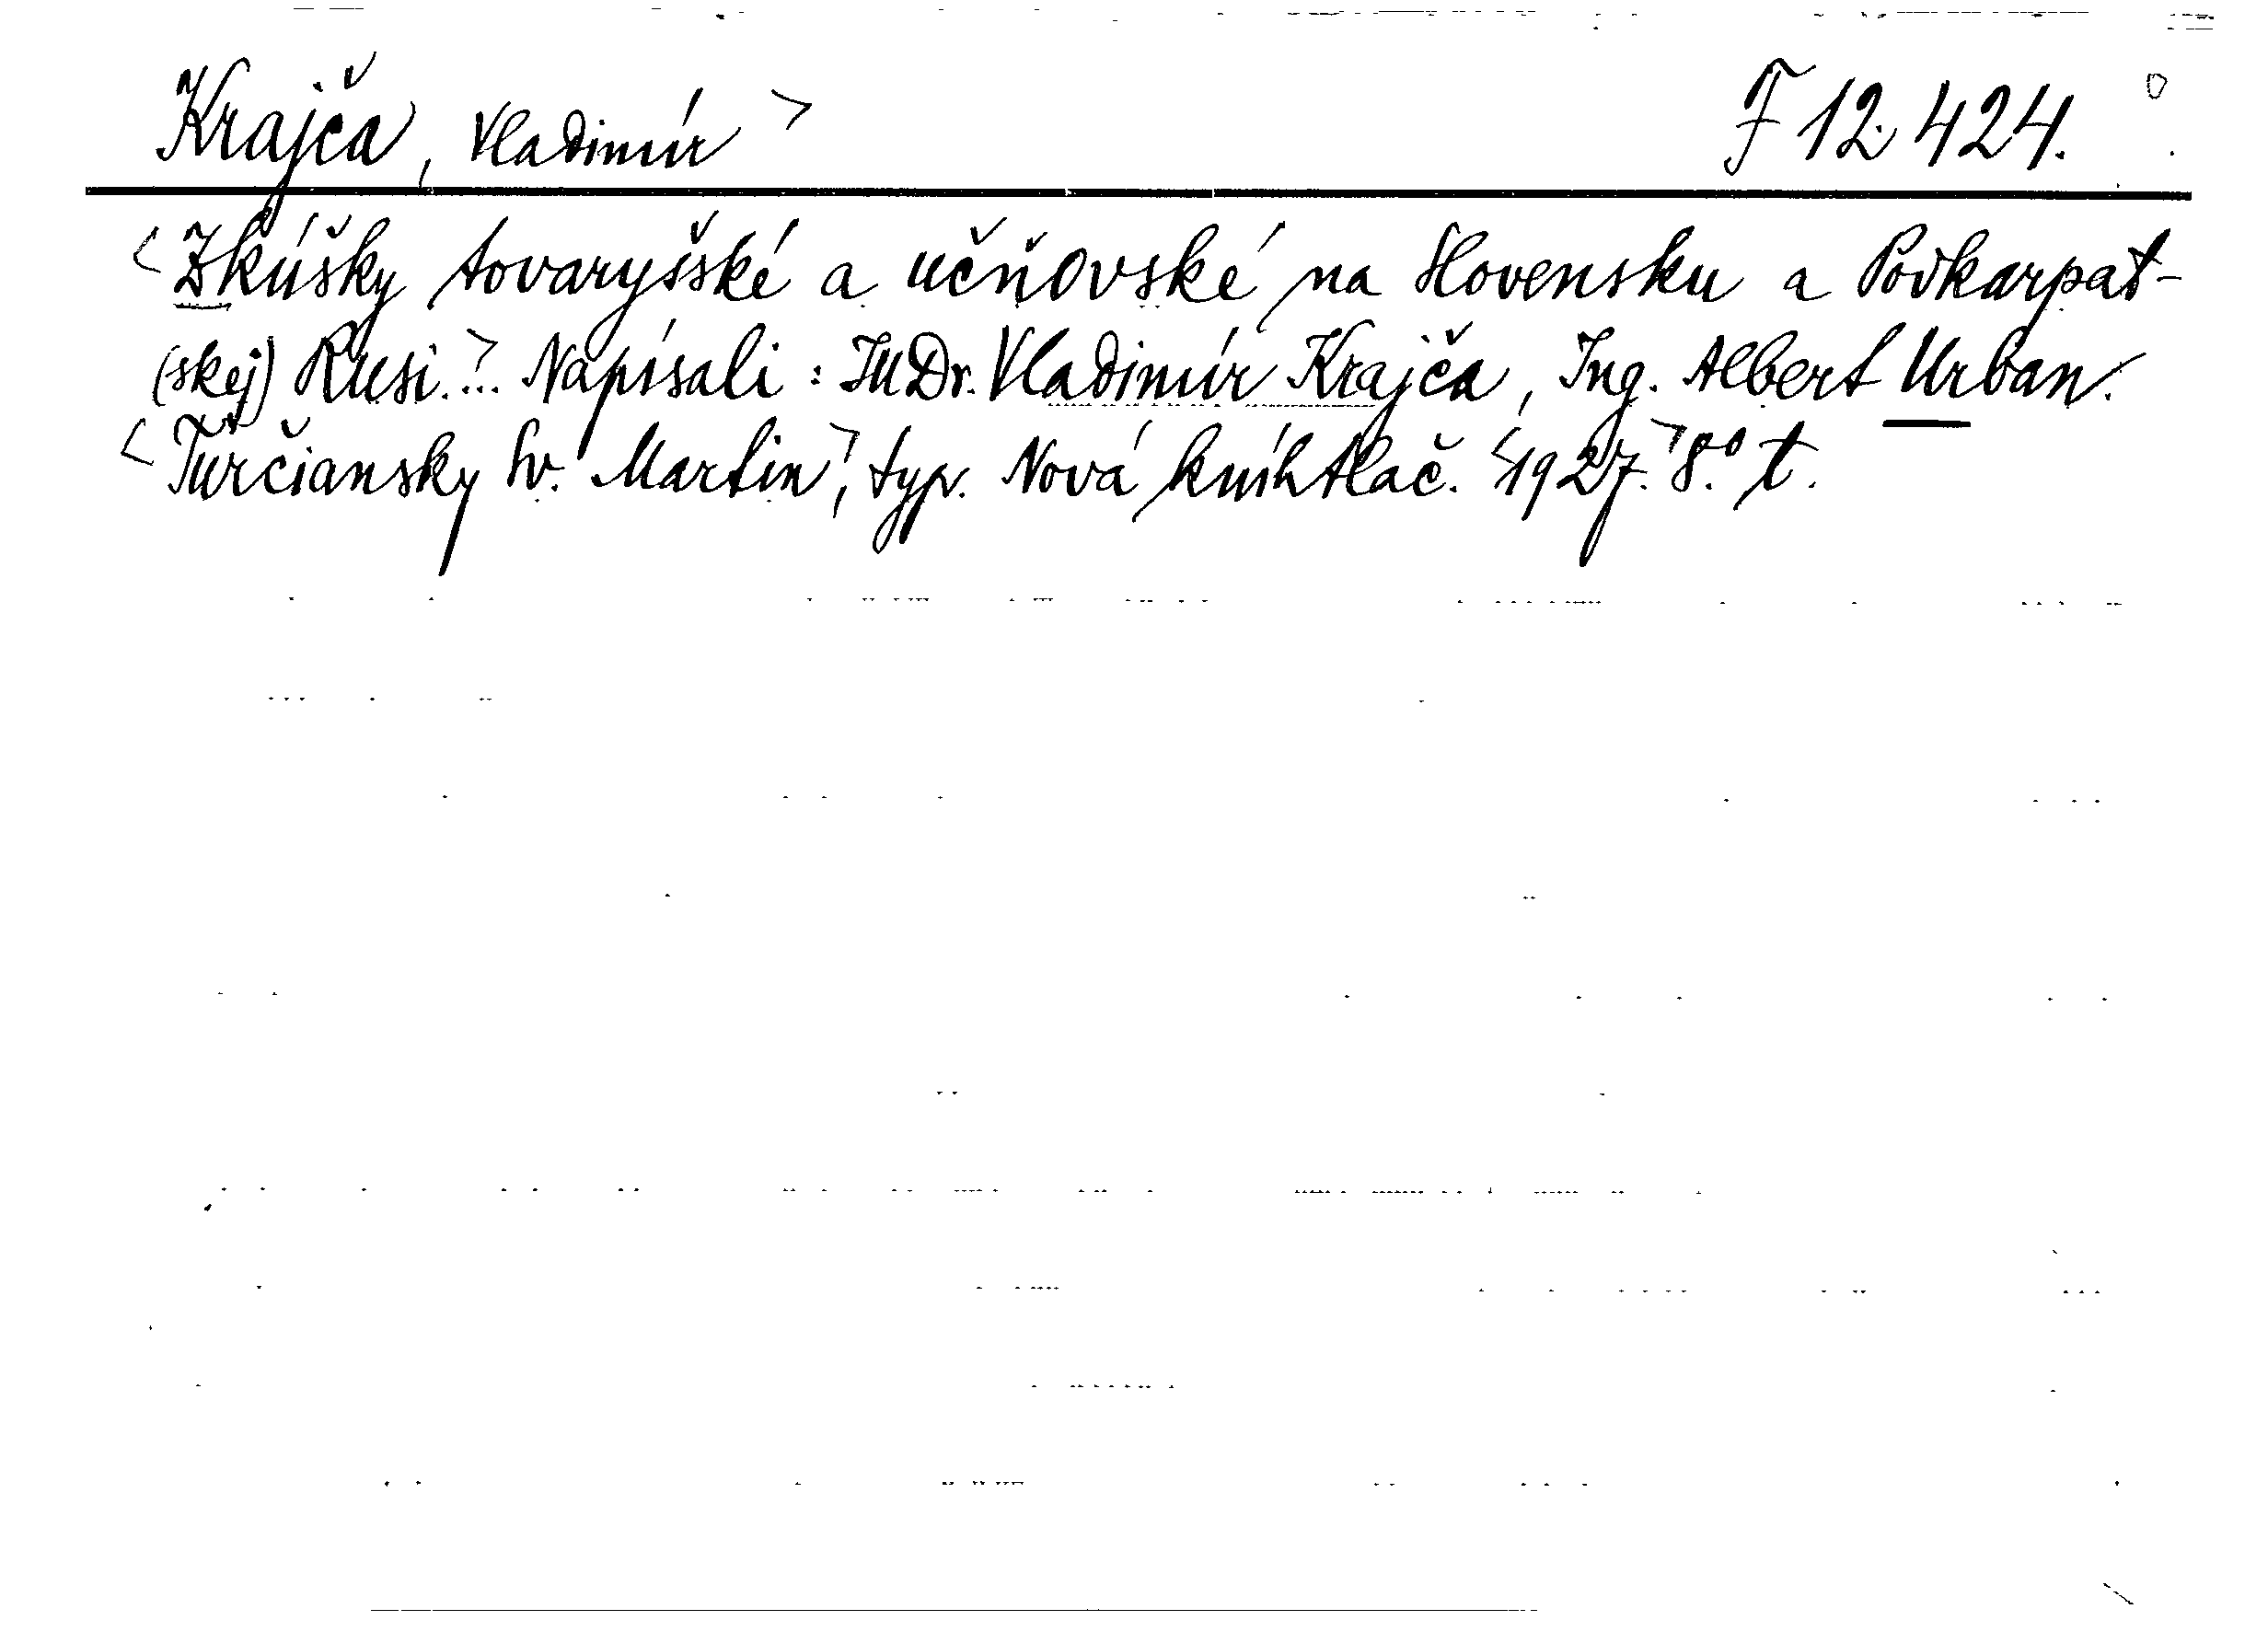 Krajča, Vladimír > F 12.424.
<Zkúšky tovaryšské a učňovské na Slovensku a Podkarpat-
(skej) Rusi.>... Napísali: JUDr. Vladimír Krajča, Ing. Albert Urban.
<Turčiansky Sv. Martin>, typ. Nová kníhtlač. <1927.> 8.° t.